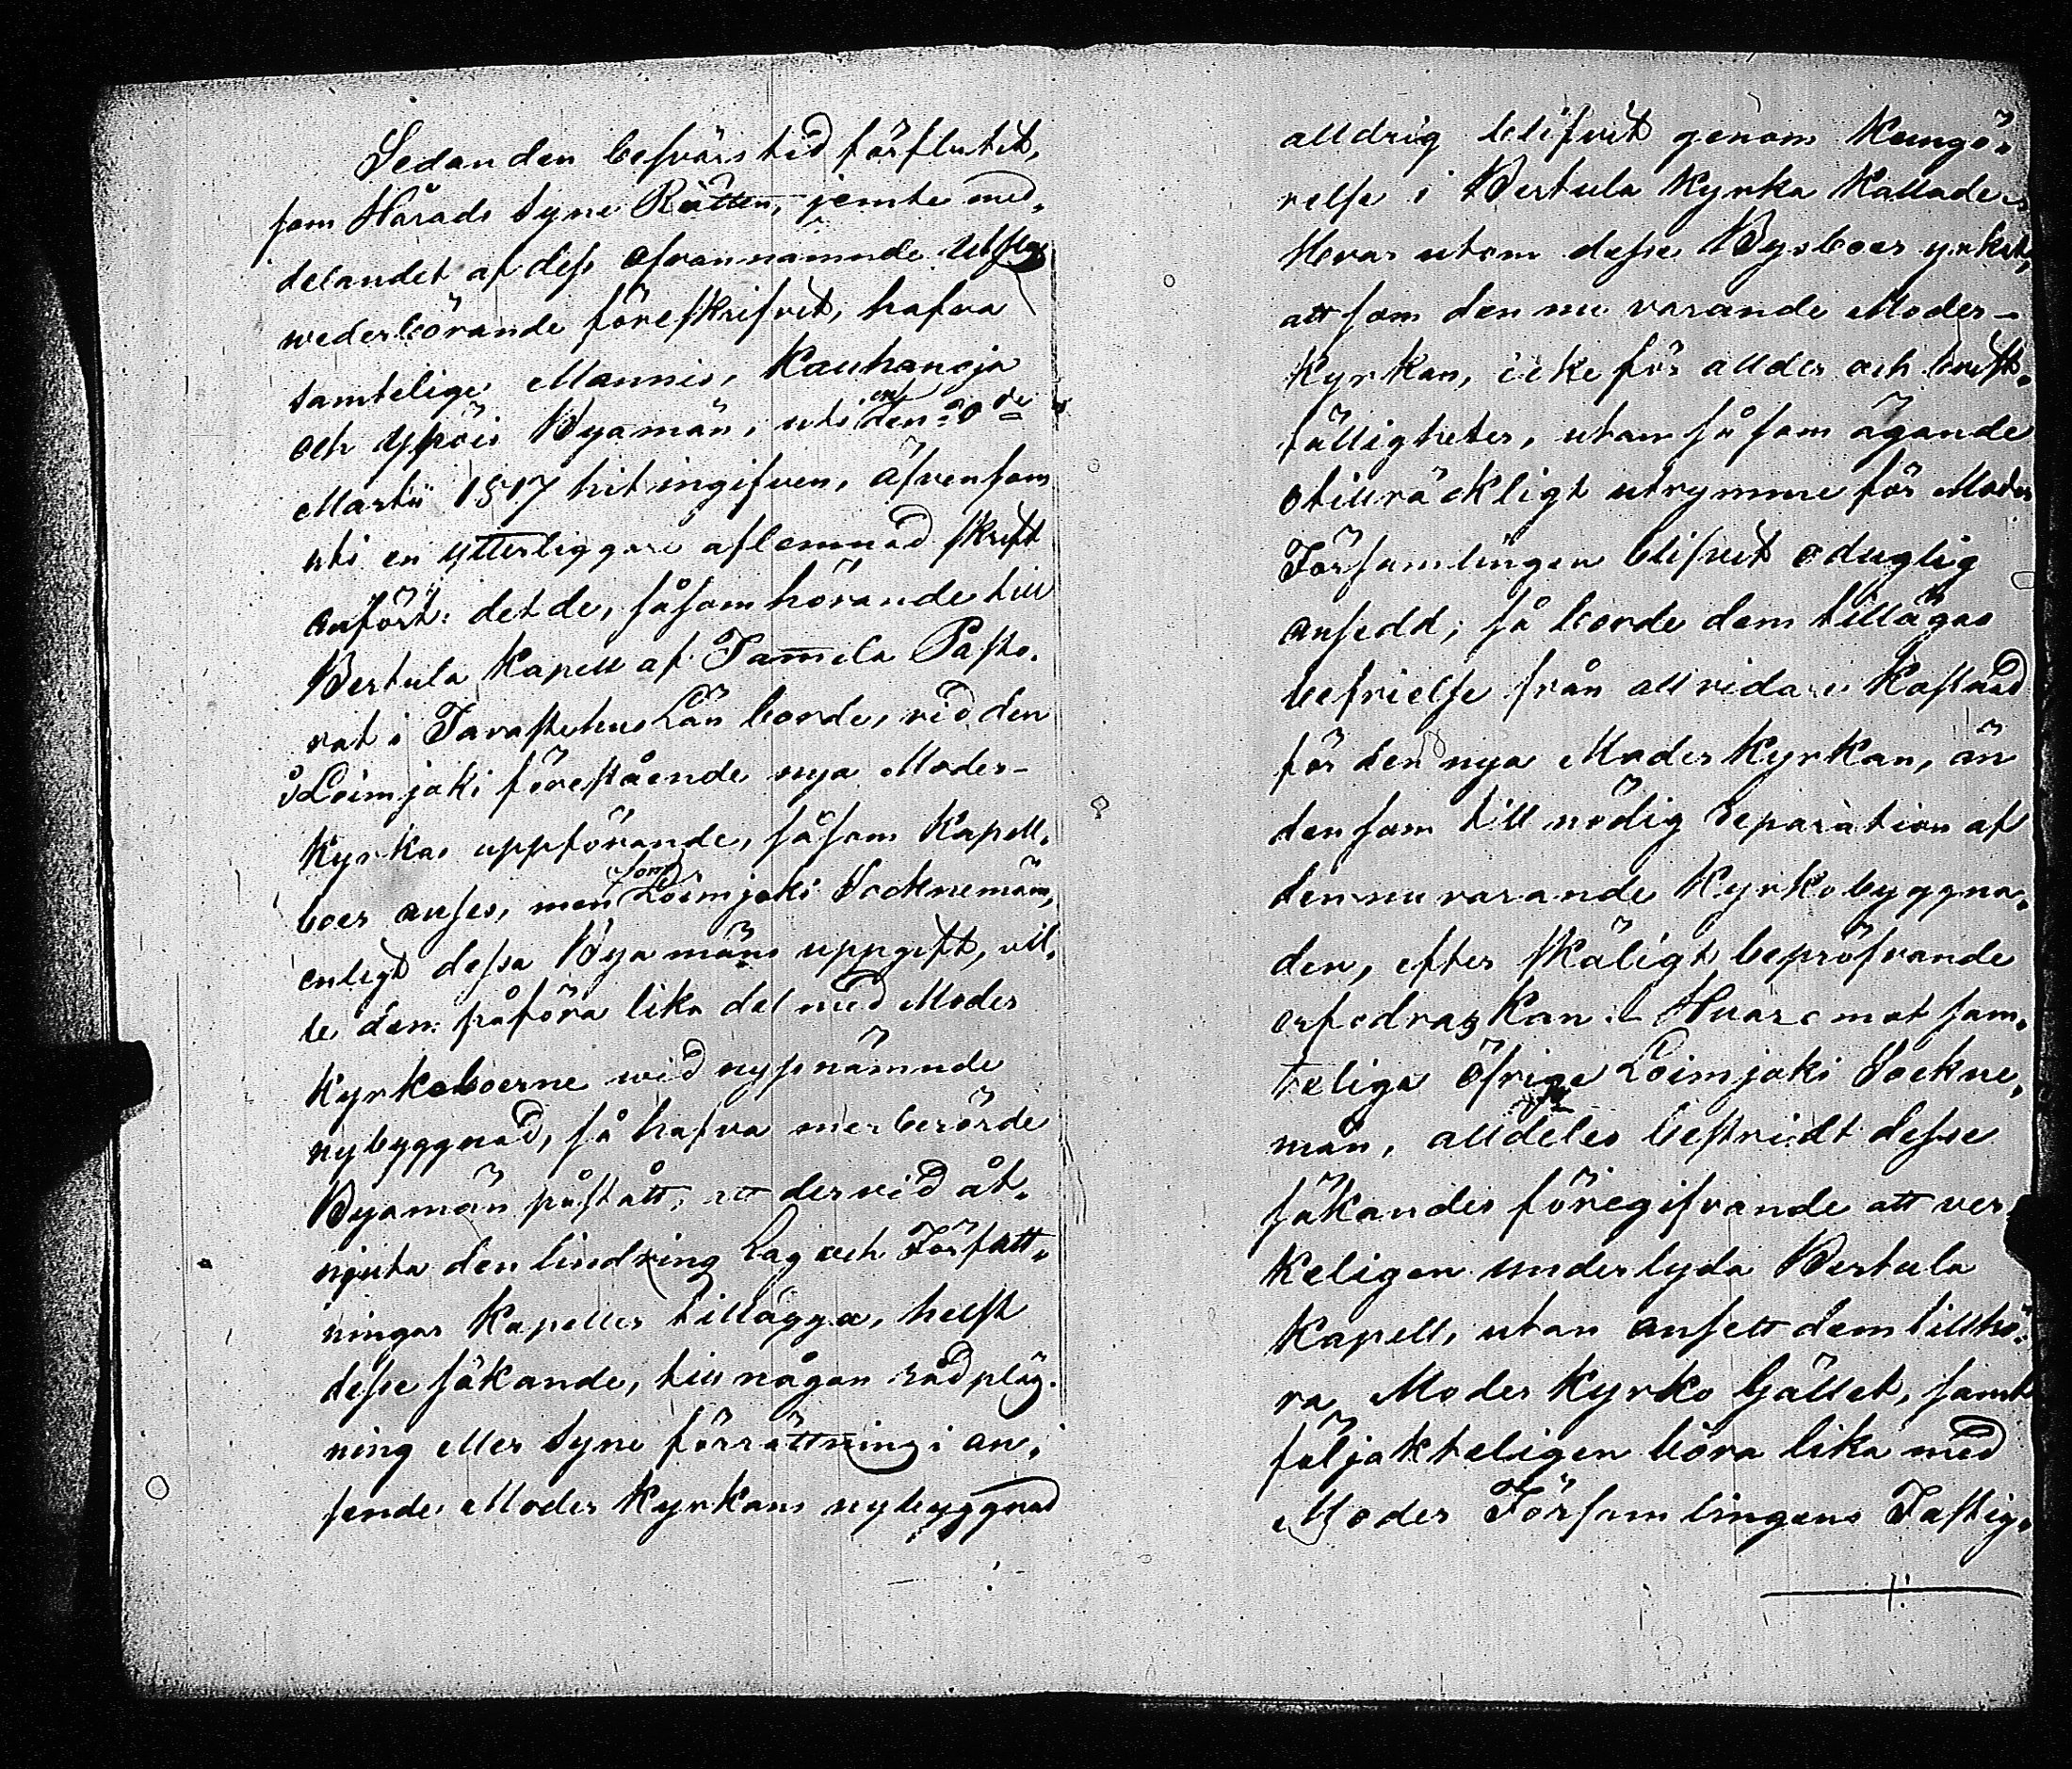 Sedan den besvärs tid förflutit,
som Härads Syne Rätten, jemte med„
delandet af dess ofvannämnde Utslag
wederbörande föreskrifvit, hafva
samtelige Mannis, Kauhanoja
och Ypöis Byamän, uti en den 20de
Martii 1817 hit ingifven, äfvensom
uti en ytterliggare aflemnad skrift
anfört: det de, såsom hörande till
Bertula Kapell af Tammela Pasto„
rat i Tavastehus Län borde, vid den
i Loimjoki förestående nya Moder-
Kyrkas uppförande, såsom Kapell„
boer anses, men som Loimjoki Socknemän,
enligt dessa Byamäns uppgift, vil„
le dem påföra lika del med Moder
Kyrkoboerne wid nyssnämnde
nybyggnad, så hafva merberörde
Byamän påstått, att dervid åt„
njuta den lindring Lag och Författ„
ningar Kapeller tillägga, helst
desse sökande, till någon rådpläg„
ning eller Syne förrättning i an„
seende Moder Kyrkans nybyggnad
alldrig blifvit genom Kungö„
relse i Bertula Kyrka Kallade„
Hvar utom desse Bysboer yrkat,
att som den nu varande Moder-
Kyrkan, icke för ålder och brist„
fälligheter, utan så som ägande
otillräckligt utrymme för Moder
Församlingen blifvit oduglig
ansedd; så borde dem tillägas
befrielse från all vidare Kostnad
för den nya Moder Kyrkan, än
den som till nödig reparation af
den nu varande Kyrkobyggna„
den, efter skäligt bepröfvande
erfodras Kan. Hvaremot sam„
telige öfrige Loimjoki Sockne„
män, alldeles bestridt desse
sökandes föregifvande att ver„
keligen underlyda Bertula
Kapell, utan ansett dem tillhö„
ra Moder Kyrko Gället, samt
följakteligen böra lika med
Moder Församlingens Fastig„